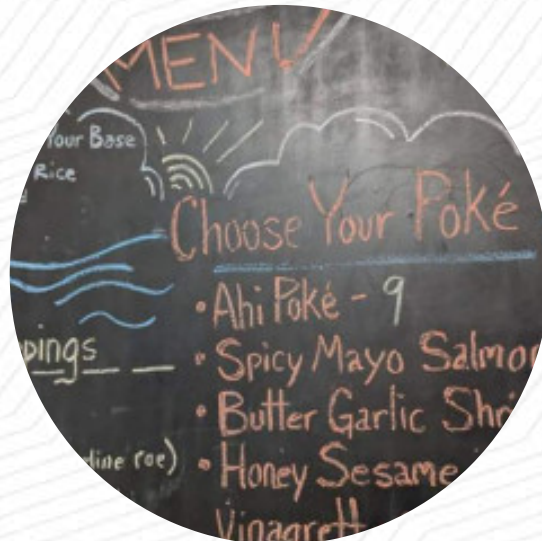 MENU
Your Base
Rice
Choose Your Poké
• Ahi Poké - 9
• Spicy Mayo Salmon
• Butter Garlic
• Honey Sesame
Vinagrett